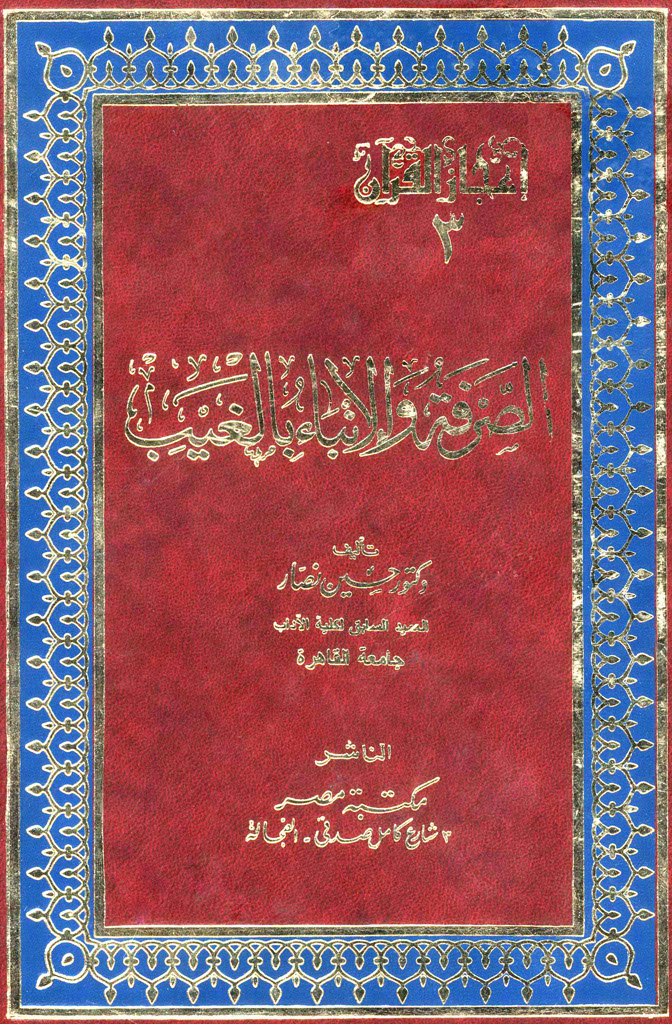 إعجاز القرآن
٣
الصَّرْفَةُ وَالإنْبَاءُ بِالغَيْبِ
تأليف
دكتور حسين نصّار
العميد السابق لكلية الآداب
جامعة القاهرة
الناشر
مكتبة مصر
٣ شارع كامل صدقى - الفجالة